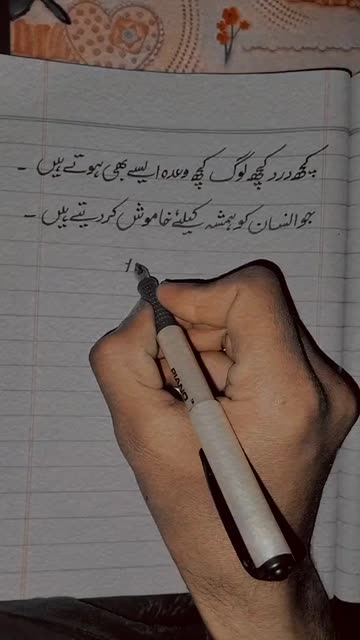 کچھ درد کچھ لوگ کچھ وعدہ ایسے بھی ہوتے ہیں ۔
جو انسان کو ہمشہ کیلئے خاموش کر دیتے ہیں ۔
PIANO